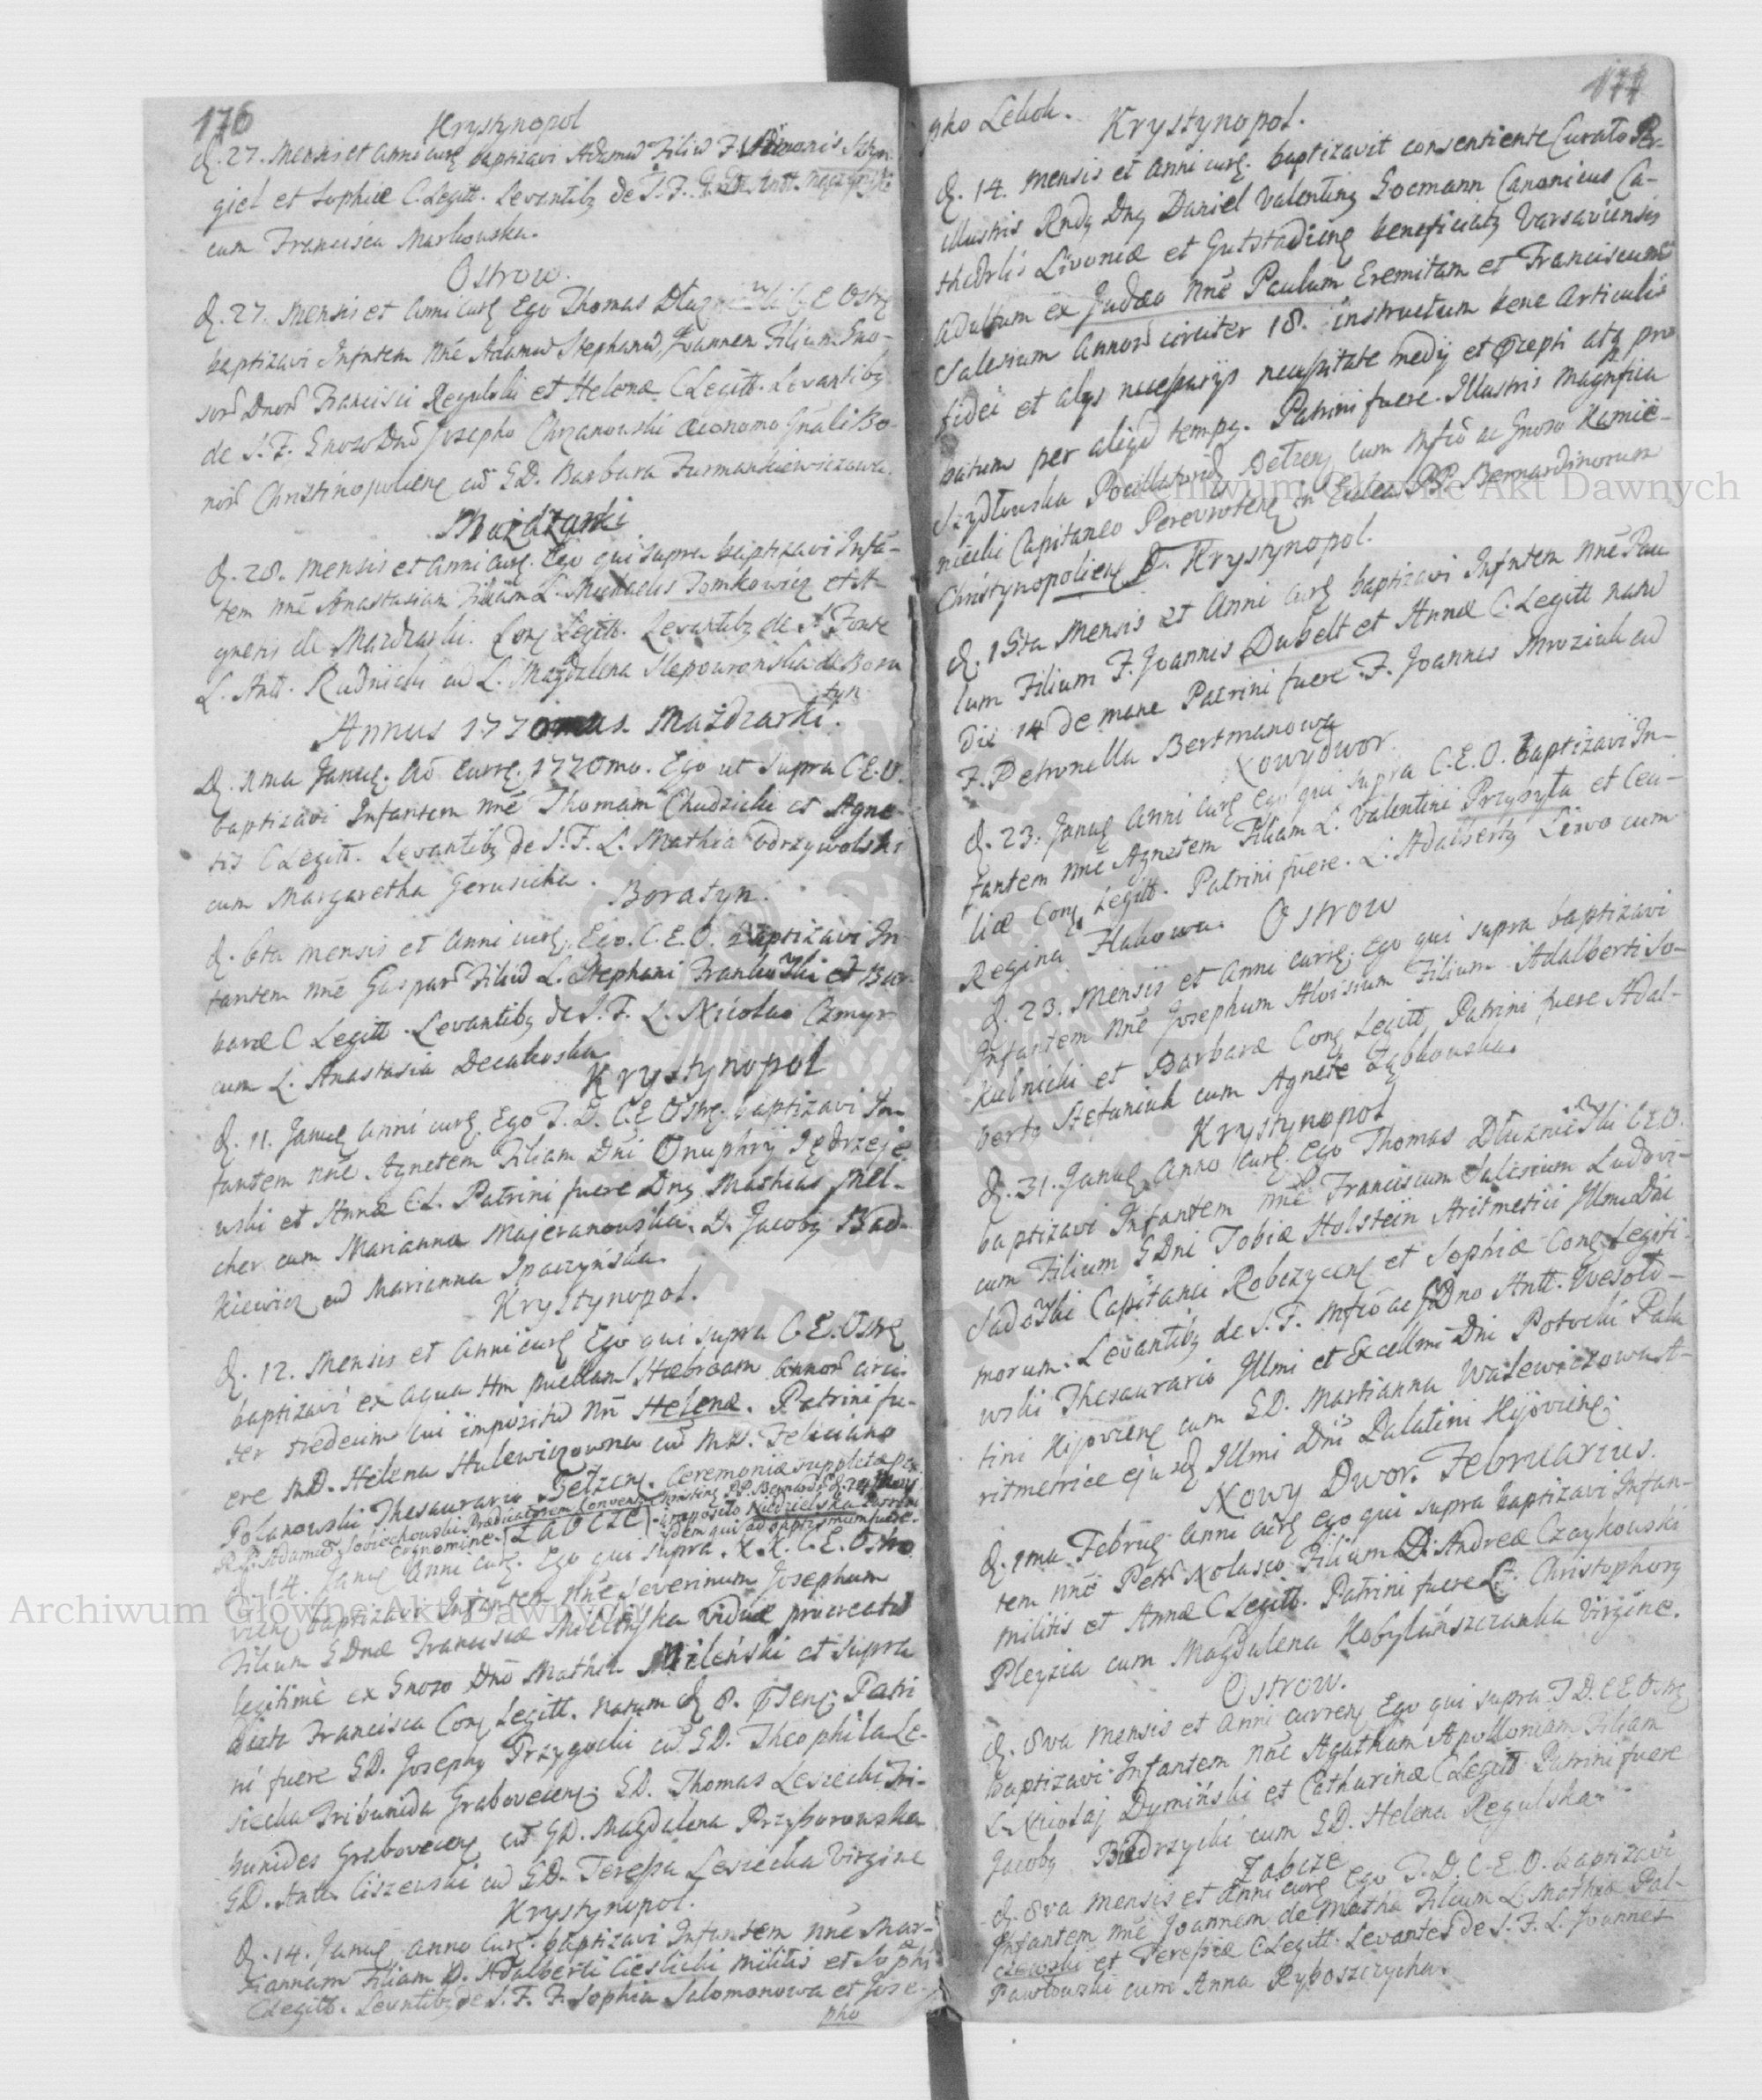 176
Krystynopol
d. 27. Mensis et Anni curr. baptizavi Adamum Filium F. Simonis
giel et Sophiæ C. Legitt. Levantibq de S. F.
cum Francisca Markowska.
Ostrow.
d. 27. Mensis et Anni curr Ego Thomas C E Ostr
baptizavi Infntem nne Adamum Stephanum, Joannem Filium Gno-
sorum Dnorum Francisci Regulski et Helenæ C Legitt. Levantibq
de S. F. Gnoso Dno Josepho Chrzanowski œconomo Gnali Bo-
norum Christinopoliens cum GD. Barbara Furmankiewiczowa.
Mazdzarki
d. 28. Mensis et Anni curr. Ego qui supra baptizavi Infā-
tem nne Anastasiam Filiam L. Michaelis Tomkowicz et A-
gnetis de Mazdzarki. Conj Legitt. Levantibq de S. Fonte
L. Antt. Rudnicki cum L. Magdalena Slepowronska de Bora
tyn.
Annus 1770mus. Mazdzarki.
D. 1ma Januar. Ao Curr. 1770mo. Ego ut supra C.E.O.
baptizavi Infantem nne Thomam Chudzicki et Agne-
tis C Legitt. Levantibq de S. F. L. Mathia Odrzywolski
cum Margaretha Gerusicka.
Boratyn.
d. 6ta Mensis et Anni curr. Ego. C. E. O. Baptizavi In-
fantem nne Gasparum Filium L. Stephani Frankowski et Bar-
baræ C Legitt. Levantibq de S. F. L. Nicolao Czmyr
cum L. Anastasia Decakoska.
Krystynopol
d. 11. Januar Anni curr. Ego T. D. C. E Ostr. baptizavi In-
fantem nne Agnetem Filiam Dni Onuphrij Jędrzeje
wski et Annæ CL. Patrini fuere Dnq Mathias Mel-
cher cum Marianna Majeranowska. D. Jacobq Bad-
kiewicz cum Marianna Spaczyńska.
Krystynopol.
d. 12. Mensis et Anni curr Ego qui supra C. E. Ostr
baptizavi ex aqua tm puellam Hæbream annorum circi
ter tredecim cui impositum nn Helenæ. Patrini fu-
ere MD. Helena Hulewiczowna cum MD. Feliciano
Polanowski Thesaurario Bełzens. Ceremoniæ suppletæ per
R. P. Adamum Sobiechowski Prædicatorem Convens Christinop PP. Bernard.
cognomine imposito Niedzielska Patrini
idem qui ad baptysmum fuere.
d. 14. Januar Anni curr. Ego qui supra. C. E. Ostro
viens baptizavi Infantem nne Severinum Josephum
Filium GDnæ Franciscæ Milenska viduæ procreatum
legitimè ex Gnoso Dno Mathia Mileński et supra
dicta Francisca Conj Legitt. natum d 8. Patri
ni fuere GD. Josephq Przygocki cum GD. Theophila Le-
siecka Tribunida Graboveciens. GD. Thomas Lesiecki Tri-
bunides Graboveciens cum GD. Magdalena Przyborowska
GD. Antt. Ciszewski cum GD. Teressa Lesiecka Virgine
Krystynopol.
d. 14. Januar anno Curr. baptizavi Infantem nne Mar-
iannam Filiam D. Adalberti Cieslicki militis et Sophiæ
C Legitt. Levntibq de S. F. F. Sophia Salomonowa et Jose-
pho
177
pho Lekoh.
Krystynopol.
d. 14. Mensis et Anni curr. baptizavit consentiente Curato Per-
illustris Rndq Dnq Daniel Valentinq Gocmann Canonicus Ca-
thedrlis Livoniæ et Gutstadiens beneficiatq Varsaviensis
adultum ex Judæo nne Paulum Eremitam et Franciscum
Salesium annorum circiter 18. instructum bene Articulis
fidei et alijs necessarijs necessitate medij et præcepti atq pro
batum per aliqd tempq. Patrini fuere. Illustris Magnifica
Szydłowska Pocillatorid Bełzens cum Mfico ac Gnoso Kamie-
niecki Capitaneo Perewotens in Ecclea PP. Bernardinorum
Christynopoliens D. Krystynopol.
d. 15ta Mensis et Anni curr baptizavi Infntem nne Pau
lum Filium F. Joannis Dubelt et Annæ C. Legitt natum
die 14 de mane Patrini fuere. F. Joannes Mroziuk cum
F. Petronella Bertmanowa
Nowydwor.
d. 23. Januar Anni curr Ego qui supra C. E. O. baptizavi In-
fantem nne Agnetem Filiam L. Valentini Przysyta et Ceci-
liæ Conj Legitt. Patrini fuere. L. Adalbertq Lewo cum
Regina Hakowa.
Ostrow
d. 23. Mensis et Anni curr. Ego qui supra baptizavi
Infantem nne Josephum Aloisium Filium Adalberti So-
kulnicki et Barbaræ Conj Legitt Patrini fuere Adal-
bertq Stefaniuk cum Agnete Ząbkowska.
Krystynopol
d. 31. Januar Anno curr. Ego Thomas Dłuzniewski C E O.
baptizavi Infantem nne Franciscum Salesium Ludovi-
cum Filium GDni Tobiæ Holstein Aritmetici Illmi Dni
Sadowski Capitanei Robczycens et Sophiæ Conj Legiti-
morum. Levantibq de S. F. Mfico ac GDno Antt. Wesoło-
wski Thesaurario Illmi et Excellmi Dni Potocki Pala
tini Kijoviens cum GD. Martianna Walewiczowa A-
ritmetrice ejusdem Illmi Dni Palatini Kijoviens.
Nowy Dwor. Februarius.
d. 1ma Februar anni curr ego qui supra baptizavi Infan-
tem nne Petrum Nolasco Filium D. Andreæ Czaykowski
militis et Annæ C Legitt. Patrini fuere L. Christophorq
Pleyzia cum Magdalena Kobylańszczanka Virgine.
Ostrow.
d. 8va Mensis et anni currens Ego qui supra T D. C E Ostr
baptizavi Infantem nne Agatham Apolloniam Filiam
L. Nicołaj Dymiński et Catharinæ C Legitt Patrini fuere
Jacobq Biedrzycki cum GD. Helena Regulska.
Zabcze
d. 8va Mensis et Anni curr Ego T. D. C. E. O. baptizavi
Infantem nne Joannem de Matha Filium L. Mathiæ Pal-
czewski et Teressiæ C Legitt. Levantes de S. F. L. Joannes
Pawłowski cum Anna Ryboszczycha.
Archiwum Główne Akt Dawnych
Archiwum Główne Akt Dawnych